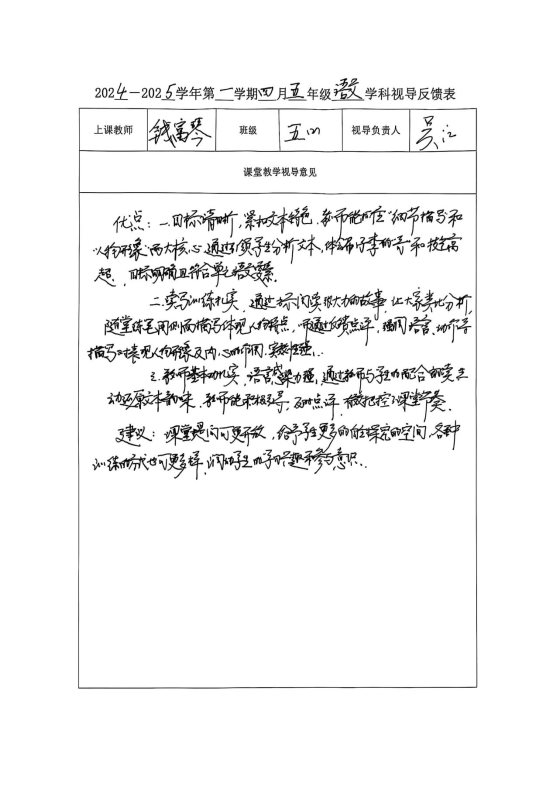 2024-2025学年第一学期四月五年级语文学科视导反馈表
上课教师 钱富琴 班级 五(1) 视导负责人 吴江
课堂教学视导意见
优点：一.目标清晰，紧扣文本特色，教师能抓住"细节描写"和
"人物形象"两大核心，通过引领学生分析文本，体会刷子李的"奇"和技艺高
超，目标明确且符合单元语文要素。
二.读写训练扎实，通过 阅读 的故事，让大家类比分析，
随堂练笔用侧面描写体现人物特点，而通过反馈点评，强调语言、动作等
描写对表现人物形象及内心的作用，实效性强。
三.教师基本功扎实，语言感染力强，通过教师与学生的配合朗读生
动还原文本 ，教师能积极引导，及时点评，很好把控了课堂节奏。
建议：课堂提问可更开放，给予学生更多的自主探究的空间，各种
训练的形式也可更多样，调动学生的学习兴趣和参与意识。